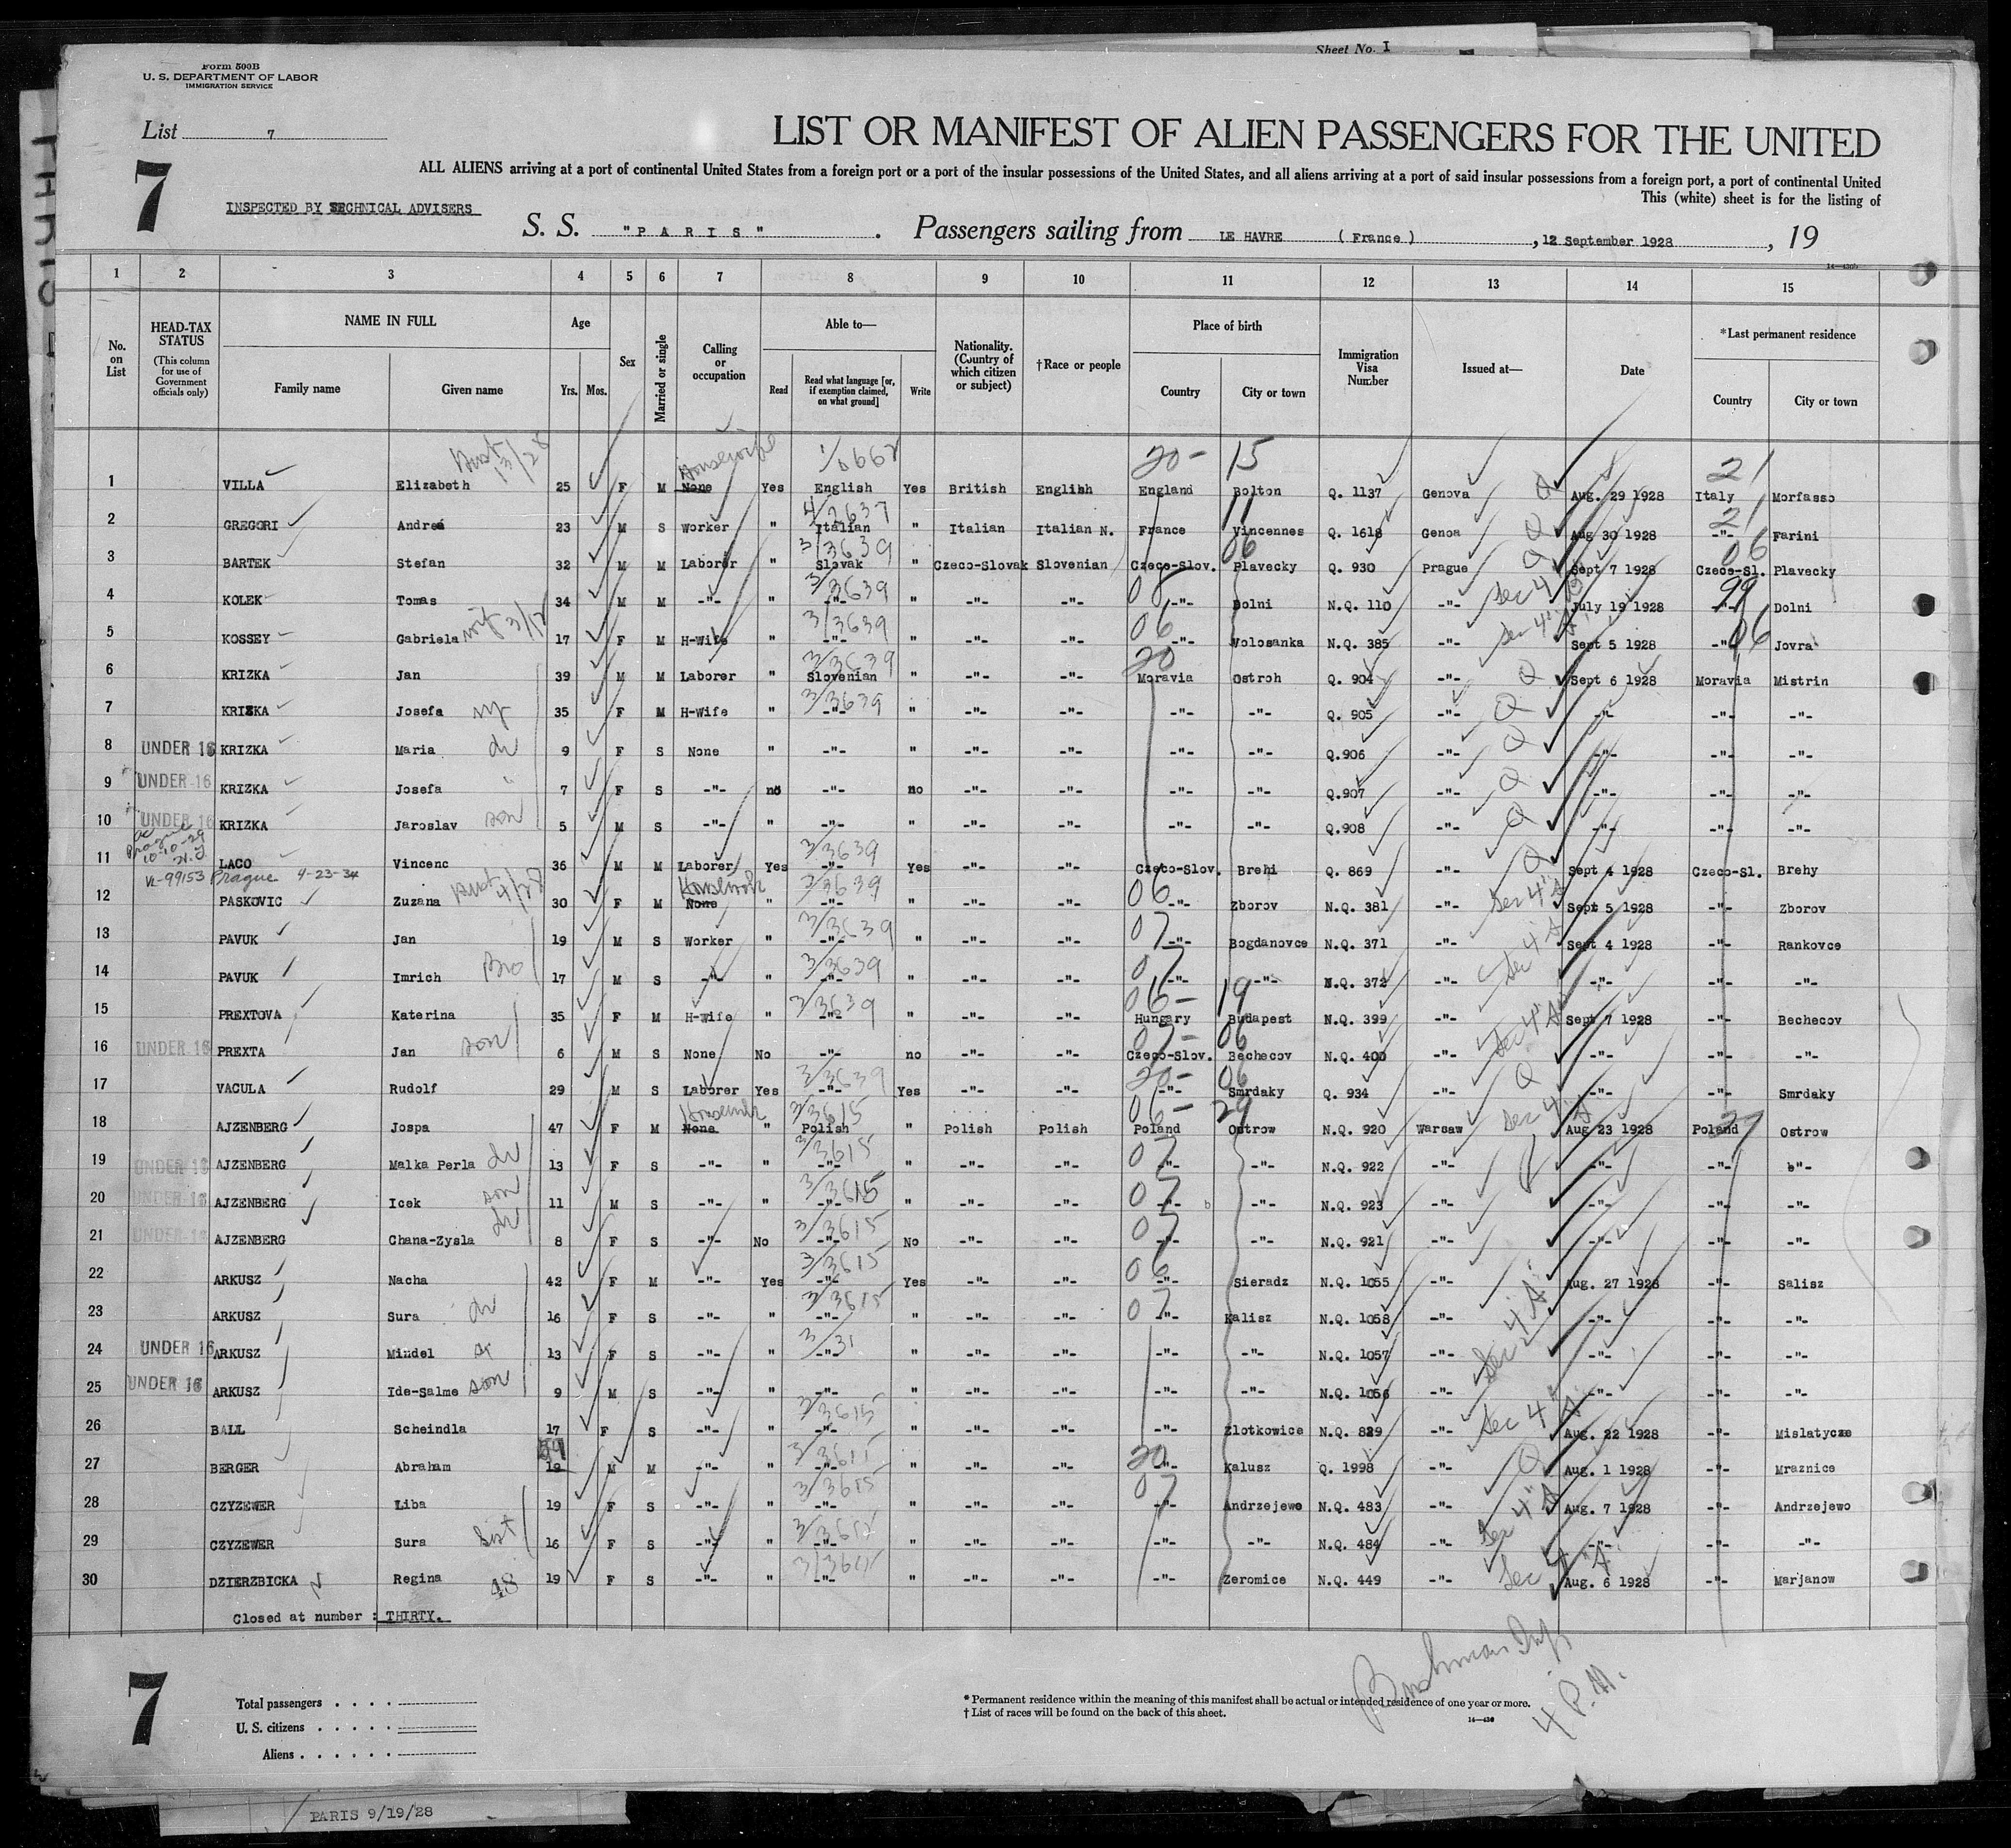 Sheet No. I
Form 500B
U. S. DEPARTMENT OF LABOR
IMMIGRATION SERVICE
List 7
LIST OR MANIFEST OF ALIEN PASSENGERS FOR THE UNITED
7
ALL ALIENS arriving at a port of continental United States from a foreign port or a port of the insular possessions of the United States, and all aliens arriving at a port of said insular possessions from a foreign port, a port of continental United
This (white) sheet is for the listing of
INSPECTED BY TECHNICAL ADVISERS
S. S. "PARIS". Passengers sailing from LE HAVRE (France), 12 September 1928, 19
1 2 3 4 5 6 7 8 9 10 11 12 13 14 15
No. on List
HEAD-TAX STATUS (This column for use of Government officials only)
NAME IN FULL Family name Given name
Age Yrs. Mos.
Sex
Married or single
Calling or occupation
Able to— Read Read what language [or, if exemption claimed, on what ground] Write
Nationality. (Country of which citizen or subject)
†Race or people
Place of birth Country City or town
Immigration Visa Number
Issued at—
Date
*Last permanent residence Country City or town
1 VILLA Elizabeth 25 F M None Housewife Yes English Yes British English England Bolton Q. 1137 Genova Aug. 29 1928 Italy Morfasso
2 GREGORI Andrea 23 M S Worker " Italian " Italian Italian N. France Vincennes Q. 1618 Genoa Aug 30 1928 -"- Farini
3 BARTEK Stefan 32 M M Laborer " Slovak " Czeco-Slovak Slovenian Czeco-Slov. Plavecky Q. 930 Prague Sept 7 1928 Czeco-Sl. Plavecky
4 KOLEK Tomas 34 M M -"- " -"- " -"- -"- -"- Dolni N.Q. 110 -"- July 19 1928 -"- Dolni
5 KOSSEY Gabriela 17 F M H-Wife " -"- " -"- -"- -"- Volosanka N.Q. 385 -"- Sept 5 1928 -"- Jovra
6 KRIZKA Jan 39 M M Laborer " Slovenian " -"- -"- Moravia Ostroh Q. 904 -"- Sept 6 1928 Moravia Mistrin
7 KRIZKA Josefa 35 F M H-Wife " -"- " -"- -"- -"- -"- Q. 905 -"- -"- -"- -"-
8 UNDER 16 KRIZKA Maria 9 F S None " -"- " -"- -"- -"- -"- Q.906 -"- -"- -"- -"-
9 UNDER 16 KRIZKA Josefa 7 F S -"- no -"- no -"- -"- -"- -"- Q.907 -"- -"- -"- -"-
10 UNDER 16 KRIZKA Jaroslav son 5 M S -"- " -"- " -"- -"- -"- -"- Q.908 -"- -"- -"- -"-
11 LACO Vincenc 36 M M Laborer Yes -"- Yes -"- -"- Czeco-Slov. Brehi Q. 869 -"- Sept 4 1928 Czeco-Sl. Brehy
VL-99153 Prague 4-23-34
12 PASKOVIC Zuzana 30 F M None " -"- " -"- -"- -"- Zborov N.Q. 381 -"- Sept 5 1928 -"- Zborov
13 PAVUK Jan 19 M S Worker " -"- " -"- -"- -"- Bogdanovce N.Q. 371 -"- Sept 4 1928 -"- Rankovce
14 PAVUK Imrich Bro 17 M S -"- " -"- " -"- -"- -"- -"- N.Q. 372 -"- -"- -"- -"-
15 PREXTOVA Katerina 35 F M H-Wife " -"- " -"- -"- Hungary Budapest N.Q. 399 -"- Sept 7 1928 -"- Bechecov
16 UNDER 16 PREXTA Jan son 6 M S None No -"- no -"- -"- Czeco-Slov. Bechecov N.Q. 400 -"- -"- -"- -"-
17 VACULA Rudolf 29 M S Laborer Yes -"- Yes -"- -"- -"- Smrdaky Q. 934 -"- -"- -"- Smrdaky
18 AJZENBERG Jospa 47 F M None " Polish " Polish Polish Poland Ostrow N.Q. 920 Warsaw Aug 23 1928 Poland Ostrow
19 UNDER 16 AJZENBERG Malka Perla 13 F S -"- " -"- " -"- -"- -"- -"- N.Q. 922 -"- -"- -"- -"-
20 UNDER 16 AJZENBERG Icek son 11 M S -"- " -"- " -"- -"- -"- -"- N.Q. 923 -"- -"- -"- -"-
21 UNDER 16 AJZENBERG Chana-Zysla 8 F S -"- No -"- No -"- -"- -"- -"- N.Q. 921 -"- -"- -"- -"-
22 ARKUSZ Nacha 42 F M -"- Yes -"- Yes -"- -"- -"- Sieradz N.Q. 1055 -"- Aug. 27 1928 -"- Salisz
23 ARKUSZ Sura 16 F S -"- " -"- " -"- -"- -"- Kalisz N.Q. 1058 -"- -"- -"- -"-
24 UNDER 16 ARKUSZ Mindel 13 F S -"- " -"- " -"- -"- -"- -"- N.Q. 1057 -"- -"- -"- -"-
25 UNDER 16 ARKUSZ Ide-Salme son 9 M S -"- " -"- " -"- -"- -"- -"- N.Q. 1056 -"- -"- -"- -"-
26 BALL Scheindla 17 F S -"- " -"- " -"- -"- -"- Zlotkowice N.Q. 829 -"- Aug. 22 1928 -"- Mislatycze
27 BERGER Abraham 59 M M -"- " -"- " -"- -"- -"- Kalusz Q. 1998 -"- Aug. 1 1928 -"- Mraznice
28 CZYZEWER Liba 19 F S -"- " -"- " -"- -"- -"- Andrzejewo N.Q. 483 -"- Aug. 7 1928 -"- Andrzejewo
29 CZYZEWER Sura Sist 16 F S -"- " -"- " -"- -"- -"- -"- N.Q. 484 -"- -"- -"- -"-
30 DZIERZBICKA Regina 48 19 F S -"- " -"- " -"- -"- -"- Zeromice N.Q. 449 -"- Aug. 6 1928 -"- Marjanow
Closed at number : THIRTY.
7
Total passengers
U. S. citizens
Aliens
* Permanent residence within the meaning of this manifest shall be actual or intended residence of one year or more.
† List of races will be found on the back of this sheet.
14—430
4 P.M.
PARIS 9/19/28